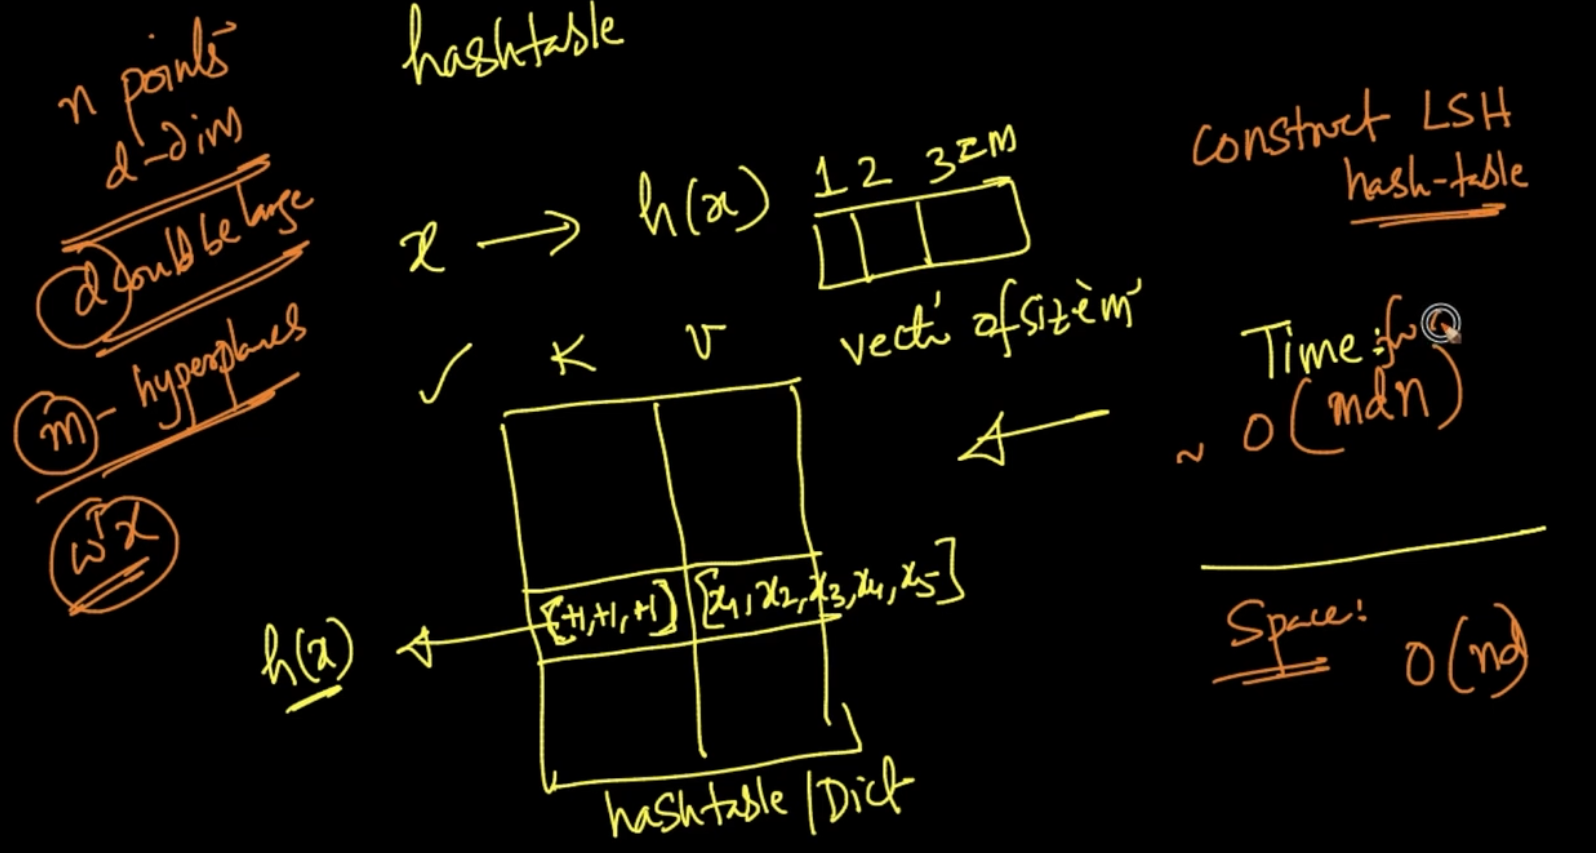 hashtable
n points
d-dims
d could be large
m - hyperplanes
wᵀx
x → h(x)
1 2 3=m
vect' of size 'm'
✓ K V
[+1,+1,+1] [x1, x2, x3, x4, x5]
h(x)
hashtable / Dict
construct LSH
hash-table
Time:
~ O(mdn)
Space:
O(nd)